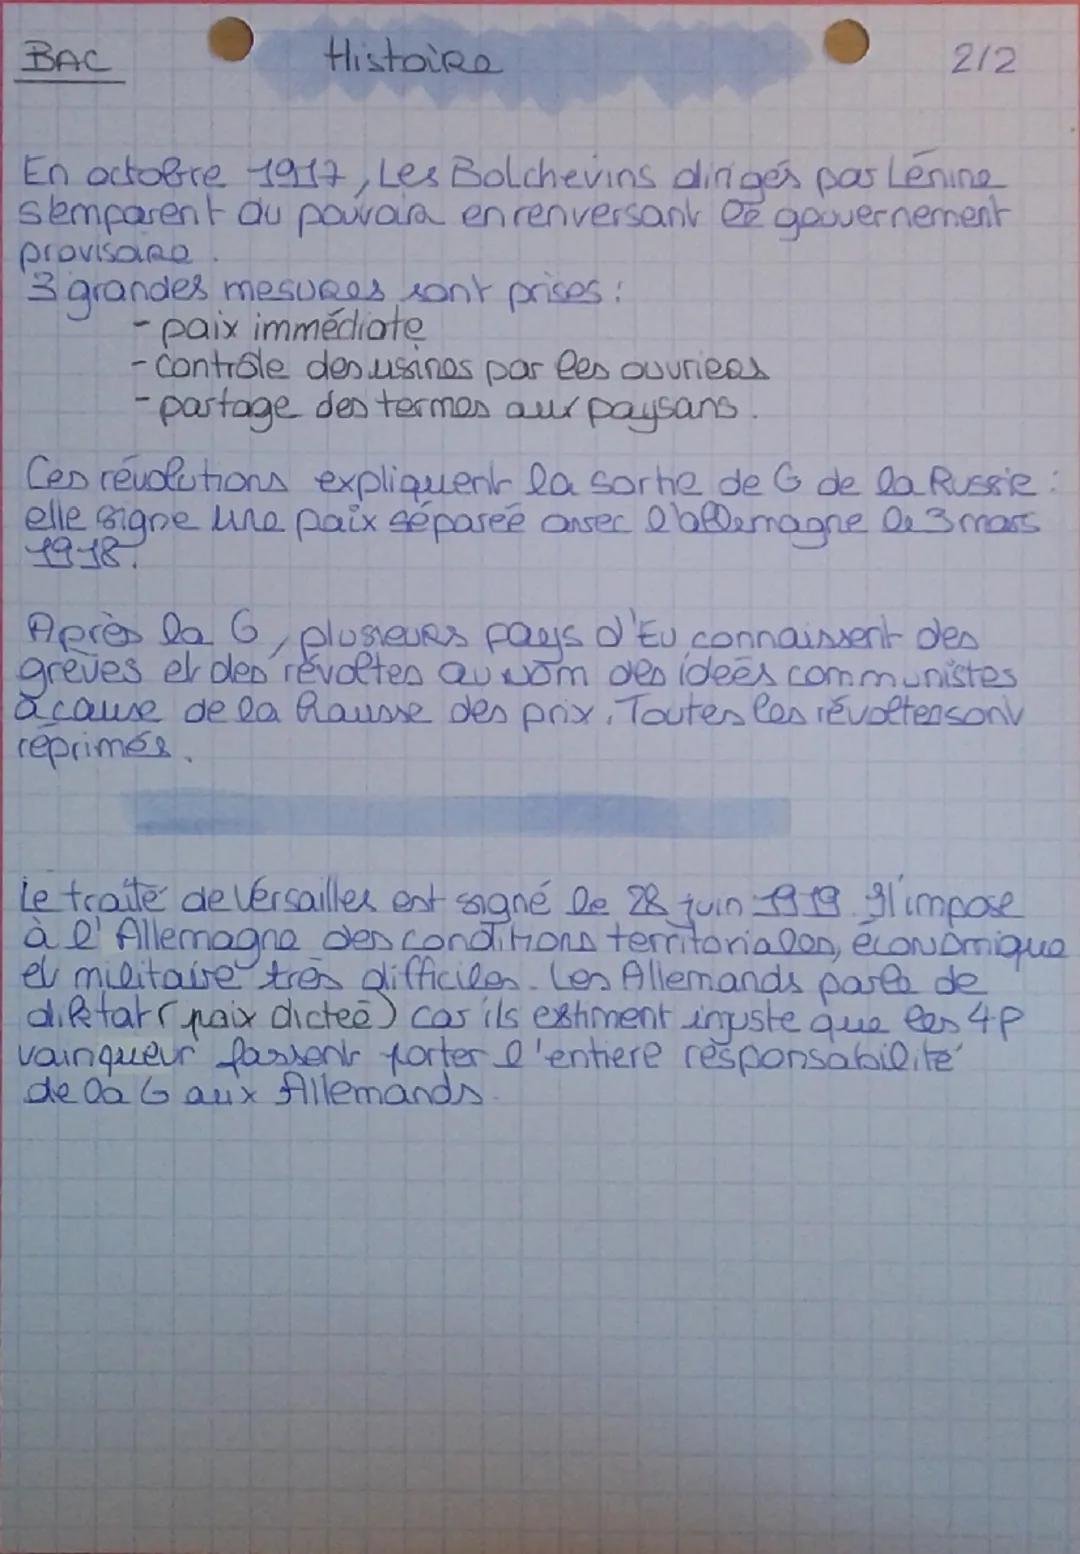 BAC Histoire 2/2
En octobre 1917, Les Bolchevins dirigés par Lénine
s'emparent du pouvoir en renversant le gouvernement
provisoire.
3 grandes mesures sont prises :
- paix immédiate
- contrôle des usines par les ouvriers
- partage des termes aux paysans.
Ces révolutions expliquent la sortie de G de la Russie :
elle signe une paix séparée avec l'allemagne le 3 mars
1918.
Après la G, plusieurs pays d'Eu connaissent des
grèves et des révoltes au nom des idées communistes
à cause de la hausse des prix. Toutes les révoltes sont
réprimés.
Le traité de Versailles est signé le 28 juin 1919. Il impose
à l'Allemagne des conditions territoriales, économique
et militaire très difficiles. Les Allemands parle de
diktat (paix dictée) car ils estiment injuste que les 4P
vainqueur fassent porter l'entiere responsabilité
de la G aux Allemands.